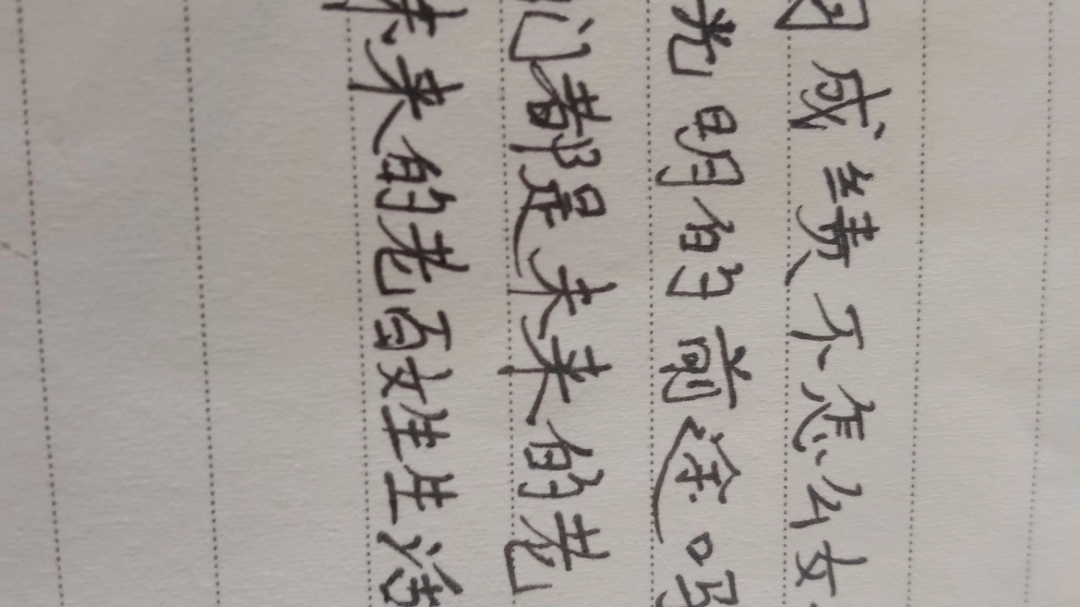 习成绩不怎么
光明的前途吗
们都是未来的老
未来的老百姓生活